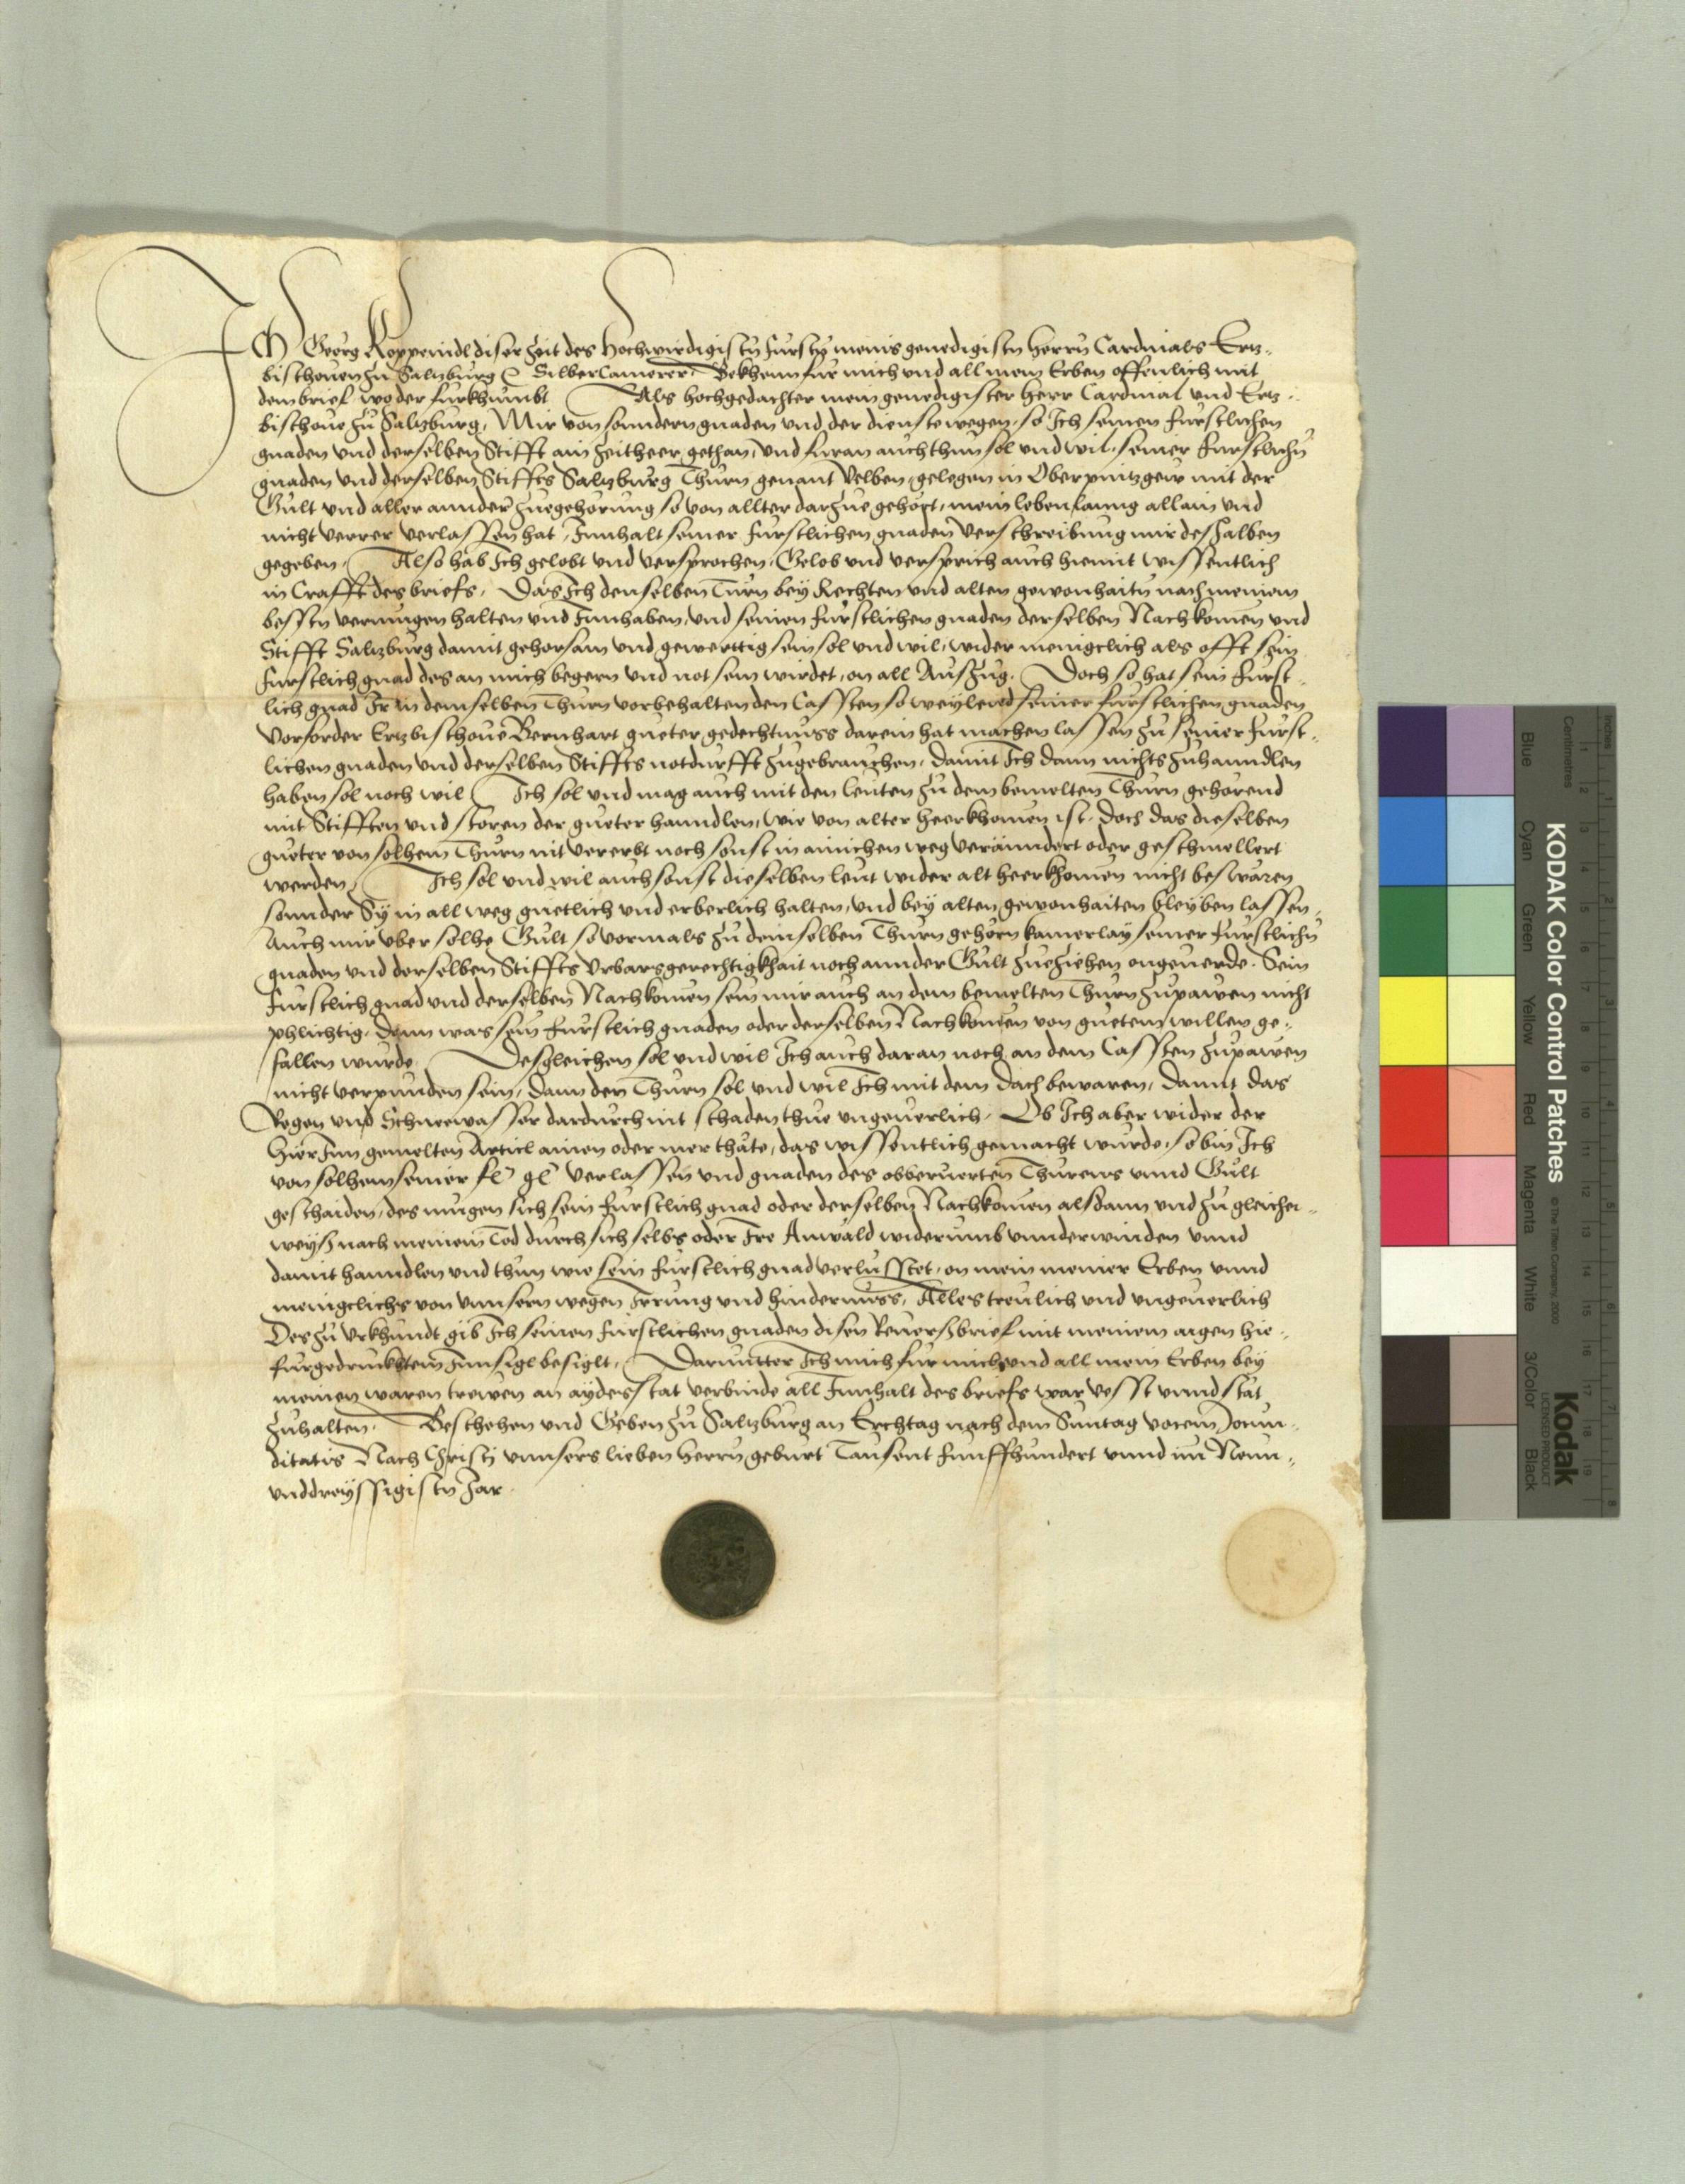 Ich Georg Koppeindl diser Zeit des Hochwirdigistn fursten meins genedigistn herrn Cardinals Ertz-
bischouen zu Saltzburg &c Silbercamerer, Bekhenn fur mich und all mein Erben offenlich mit
dem brief wo der furkhumbt Als hochgedachter mein genedigister herr Cardinal und Ertz-
bischoue zu Saltzburg, Mir von sonndern gnaden und der dienst wegen, so Ich seinen furstlichen
gnaden und derselben Stifft ain Zeitheer gethan, und furan auch thun sol und wil, seiner furstlichn
gnaden und derselben Stiffts Saltzburg Thurn genant Velben, gelegen in Oberpintzgew mit der
Gult und aller annder Zuegehorung so von allter darzue gehort, mein lebenlanng allain und
nicht verrer verlassen hat, Innhalt seiner furstlichen gnaden Verschreibung mir deshalben
gegeben, Also hab Ich gelobt und versprochen, Gelob und versprich auch hiemit wissentlich
in Crafft des briefs, Das Ich denselben Turn bey Rechten und alten gewonhaitn nach meinem
besstn vermugen halten und Innhaben, und seinen furstlichen gnaden derselben Nachkomen und
Stifft Saltzburg damit gehorsam und gewerttig sein sol und wil, wider menigclich als offt sein
furstlich gnad des an mich begern und not sein wirdet, on all Auszug, Doch so hat sein furst-
lich gnad Ir in demselben Thurn vorbehalten den Cassten so weylend seiner furstlichen gnaden
Vorforder Ertzbischoue Bernhart gueter gedechtnuss darein hat machen lassen zu seiner furst-
lichen gnaden und derselben Stiffts notdurfft zugebrauchen, damit Ich dann nichts zuhanndlen
haben sol noch wil Ich sol und mag auch mit den leuten zu dem bemelten Thurn gehorend
mit Stifften und storen der gueter hanndlen, wie von alter heerkhomen ist, doch das dieselben
gueter von solhem Thurn nit vererbt noch sonst in ainichen weg veränndert oder geschmellert
werden, Ich sol und wil auch sonst dieselben leut wider alt heerkhomen nicht beswären
sonnder Sy in all weg guetlich und erberlich halten, und bey alten gewonhaiten bleyben lassen,
Auch mir uber solhe Gult so vormals zu demselben Thurn gehorn kainerlay seiner furstlichn
gnaden und derselben Stiffts Urbarsgerechtigkhait noch annder Gult zueziehen ongeuerde. Sein
furstlich gnad und derselben Nachkomen sein mir auch an dem bemelten Thurn zupawen nicht
phlichtig, dann was sein furstlich gnaden oder derselben Nachkomen von guetem willen ge-
fallen wurde, Desgleichen sol und wil Ich auch daran noch an dem Cassten zupawen
nicht verpunden sein, dann den Thurn sol und wil Ich mit dem dach bewaren, damit das
Regen und Schneewasser dardurch nit schaden thue ungeuerlich, Ob Ich aber wider der
hierInn gemelten Articl ainen oder mer thäte, das wissentlich gemacht wurde, so bin Ich
von solhem seiner fl gl verlassen und gnaden des obberuerten Thurens unnd Gult
geschaiden, des mugen sich sein furstlich gnad oder derselben Nachkomen alsdann und zu gleicher-
weyß nach meinem Tod durch sich selbs oder Ire Anwäld widerumb unnderwinden unnd
damit hanndlen und thun wie sein furstlich gnad verlusstet, on mein meiner Erben unnd
menigclichs von unnsern wegen Irrung und hindernuss, Alles treulich und ungeuerlich
Des zu Urkhundt gib Ich seinen furstlichen gnaden disen Reuersbrief mit meinem aigen hie-
furgedruckhtem Innsigl besiglt, Daruntter Ich mich fur mich und all mein Erben bey
meinen waren trewen an aydesstat verbinde all Innhalt des briefs war vesst unnd stät
zuhalten. Beschehen und Geben zu Saltzburg an Erchtag nach dem Suntag vocem Jocun-
ditatis Nach Christi unnsers lieben herrn geburt Tausent funffhundert unnd im Neun-
unddreyssigistn Jar.
KODAK Color Control Patches
© The Tiffen Company, 2000
Kodak
LICENSED PRODUCT
Inches
Centimetres
Blue
Cyan
Green
Yellow
Red
Magenta
White
3/Color
Black